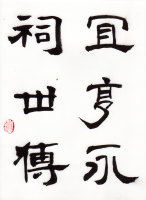 宜亨永
祠世傳